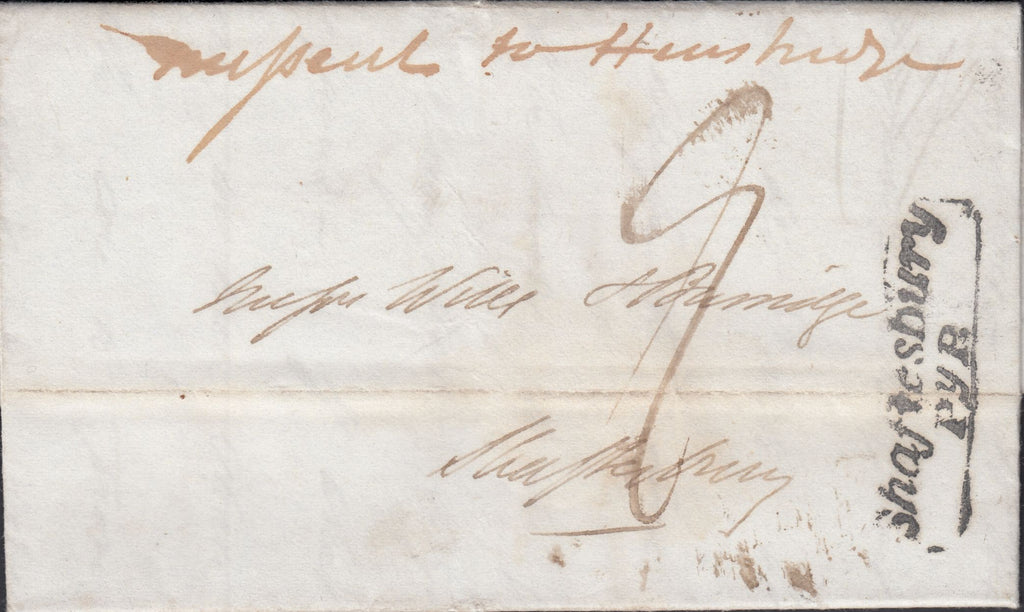 missent to Henstridge
Messrs Wills & Burridge
Shaftesbury
Shaftesbury
Py P.